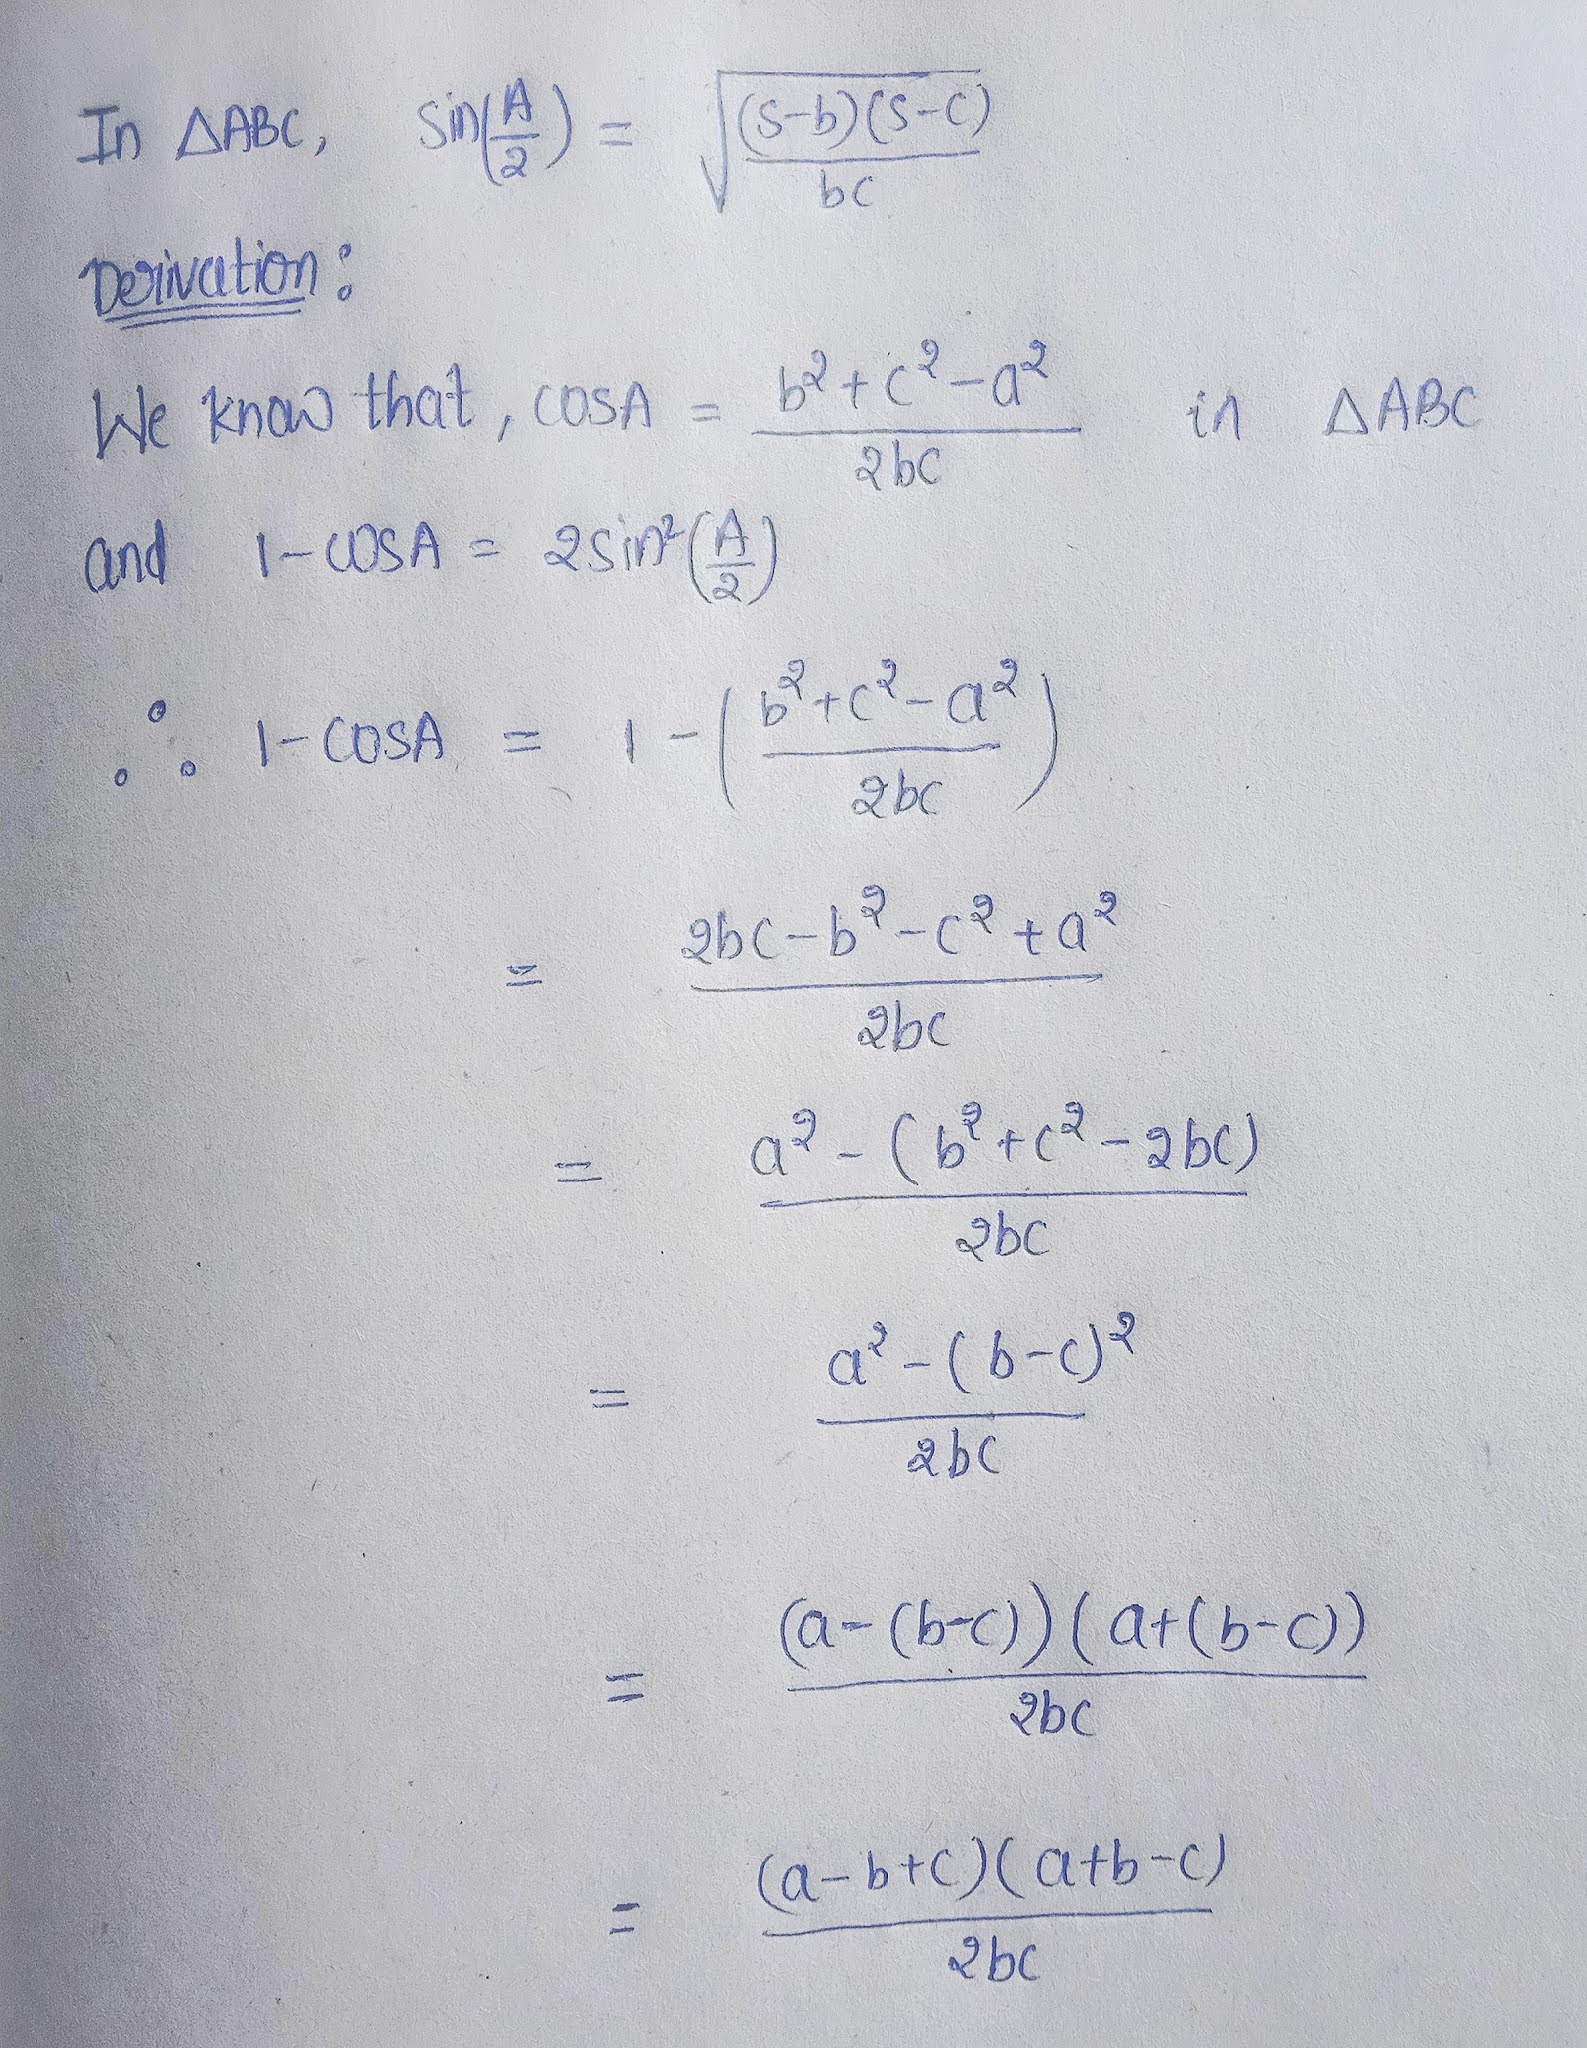 In ΔABC, sin(A/2) = √((s-b)(s-c)/bc)
Derivation:
We know that, cosA = (b²+c²-a²)/2bc in ΔABC
and 1-cosA = 2sin²(A/2)
∴ 1-cosA = 1-((b²+c²-a²)/2bc)
= (2bc-b²-c²+a²)/2bc
= (a²-(b²+c²-2bc))/2bc
= (a²-(b-c)²)/2bc
= (a-(b-c))(a+(b-c))/2bc
= (a-b+c)(a+b-c)/2bc